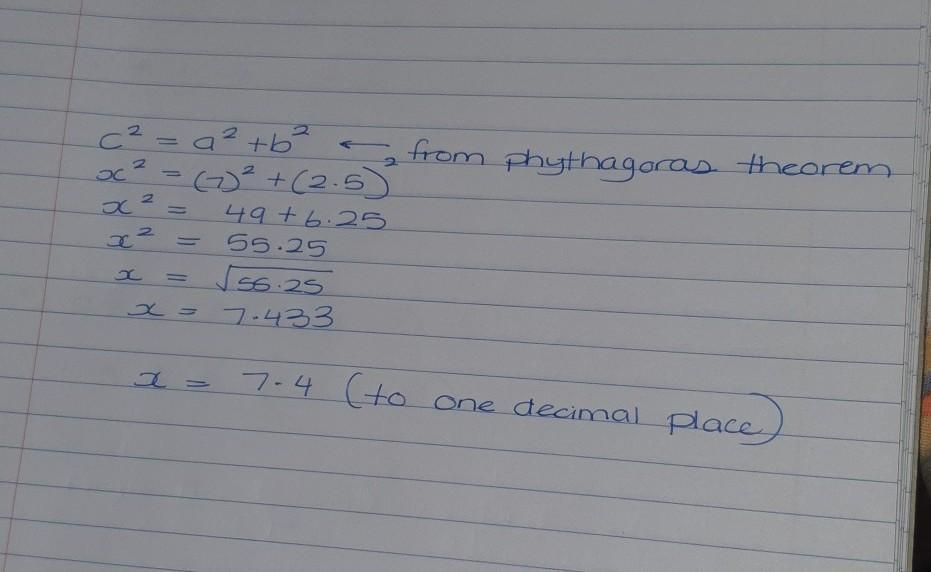 c² = a² + b² ← from phythagoras theorem
x² = (7)² + (2.5)²
x² = 49 + 6.25
x² = 55.25
x = √56.25
x = 7.433
x = 7.4 (to one decimal place)